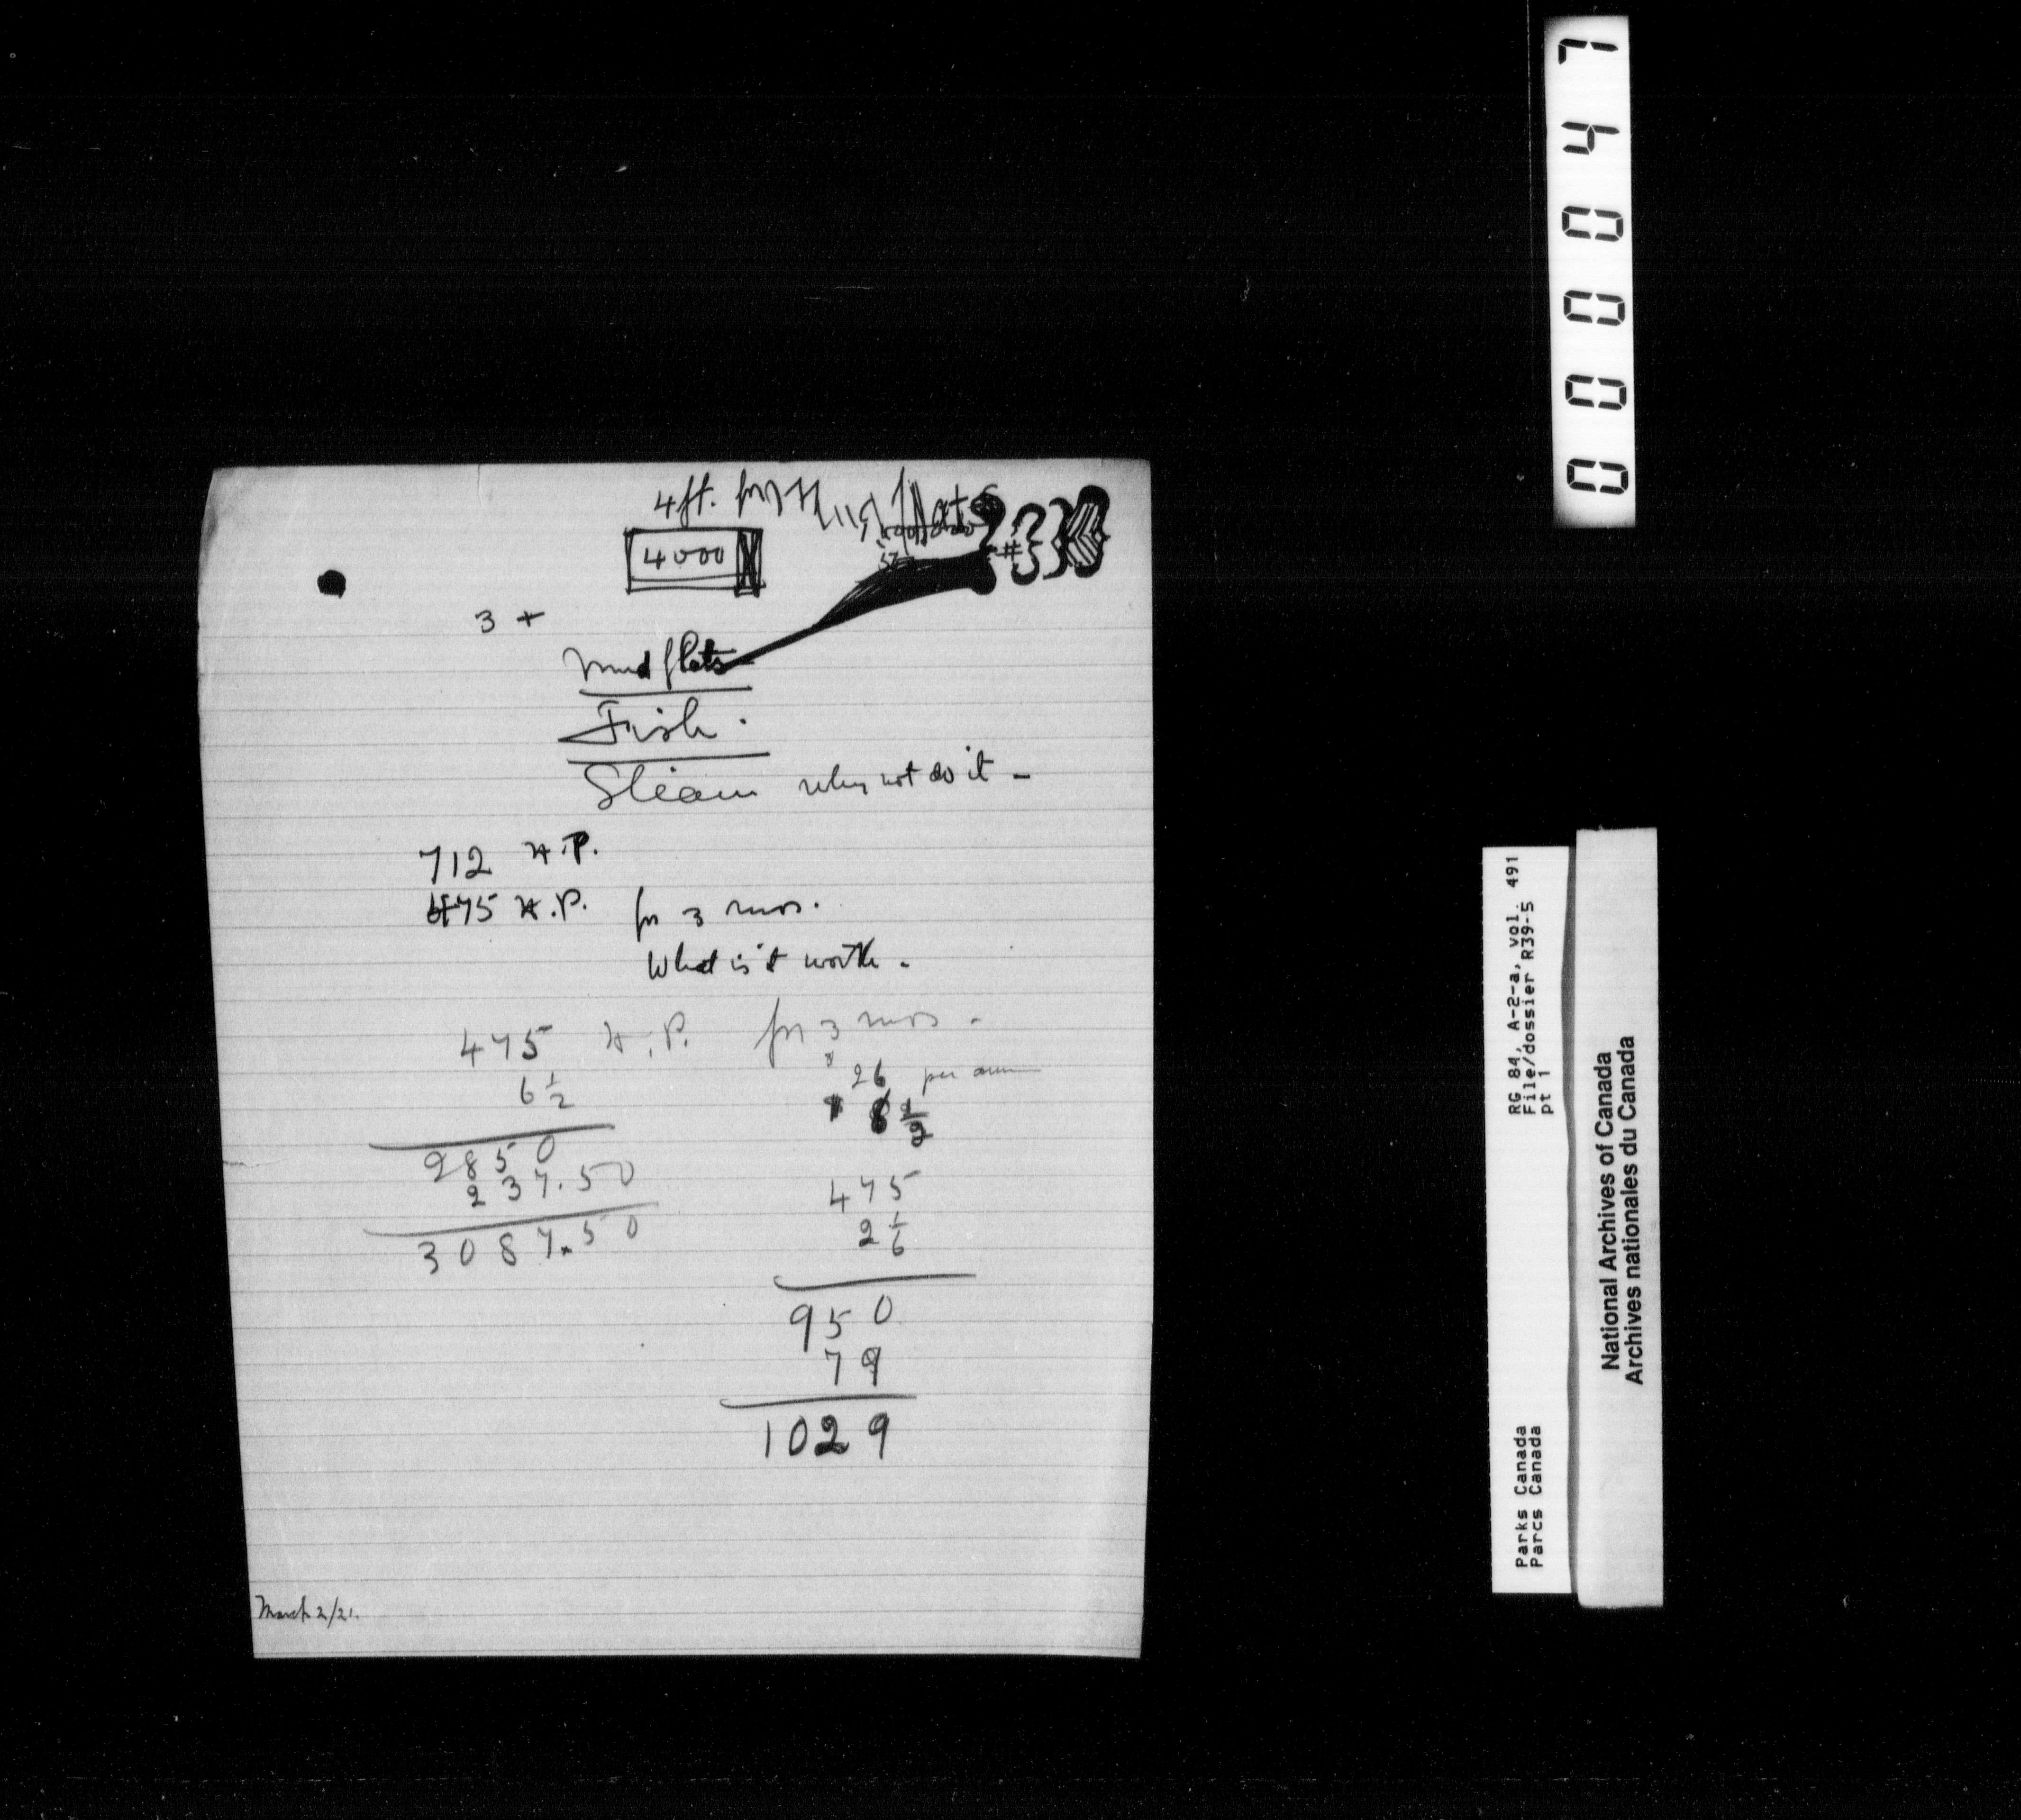 4 ft. for Mud flats
4000
#
3 +
Mud flats
Fish.
Steam why not do it -
712 H.P.
475 H.P. for 3 mos.
What is it worth.
475 H.P. for 3 mos.
6 1/2
2850
237.50
3087.50
$ 26 per annum
8 1/2
475
2 1/6
950
79
1029
March 2/21.
000047
RG 84, A-2-a, vol. 491
File/dossier R39-5
pt 1
Parks Canada
Parcs Canada
National Archives of Canada
Archives nationales du Canada